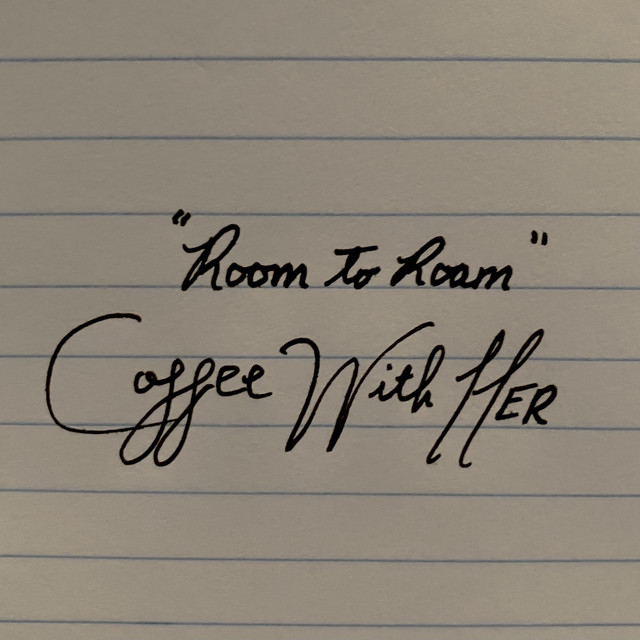 "Room to Roam"
Coffee With HER